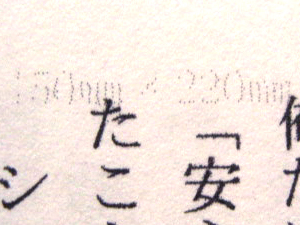 150mm × 220mm
「安
たこ
シ